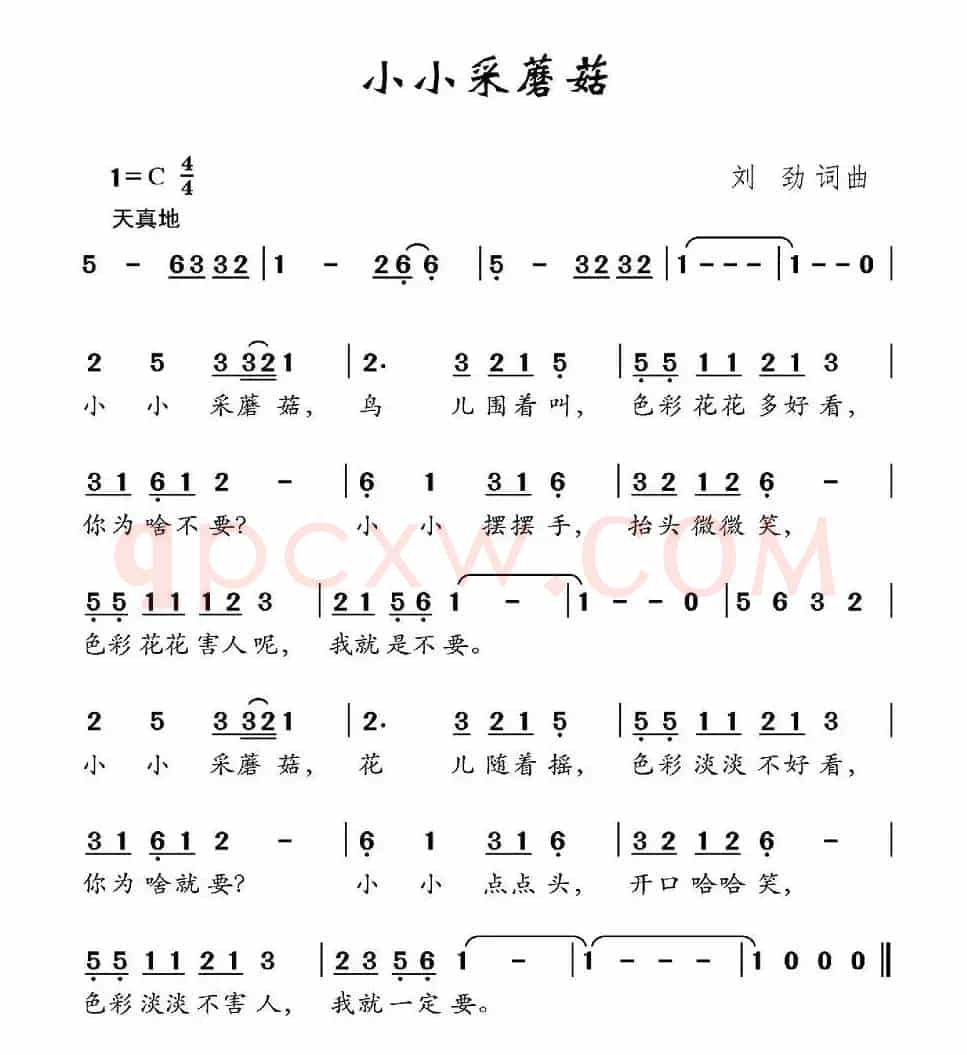 小小采蘑菇
1=C 4/4
刘 劲 词曲
天真地
5 - 63 32 | 1 - 26 6 | 5 - 32 32 | 1 - - - | 1 - - 0 |
2 5 3 32 1 | 2. 3 2 1 5 | 5 5 1 1 2 1 3 |
小 小 采蘑菇, 鸟 儿围着叫, 色彩花花多好看,
3 1 6 1 2 - | 6 1 3 1 6 | 3 2 1 2 6 - |
你为啥不要? 小 小 摆摆手, 抬头微微笑,
qpcxw.COM
5 5 1 1 1 2 3 | 2 1 5 6 1 - | 1 - - 0 | 5 6 3 2 |
色彩花花害人呢, 我就是不要。
2 5 3 32 1 | 2. 3 2 1 5 | 5 5 1 1 2 1 3 |
小 小 采蘑菇, 花 儿随着摇, 色彩淡淡不好看,
3 1 6 1 2 - | 6 1 3 1 6 | 3 2 1 2 6 - |
你为啥就要? 小 小 点点头, 开口哈哈笑,
5 5 1 1 2 1 3 | 2 3 5 6 1 - | 1 - - - | 1 0 0 0 ‖
色彩淡淡不害人, 我就一定要。